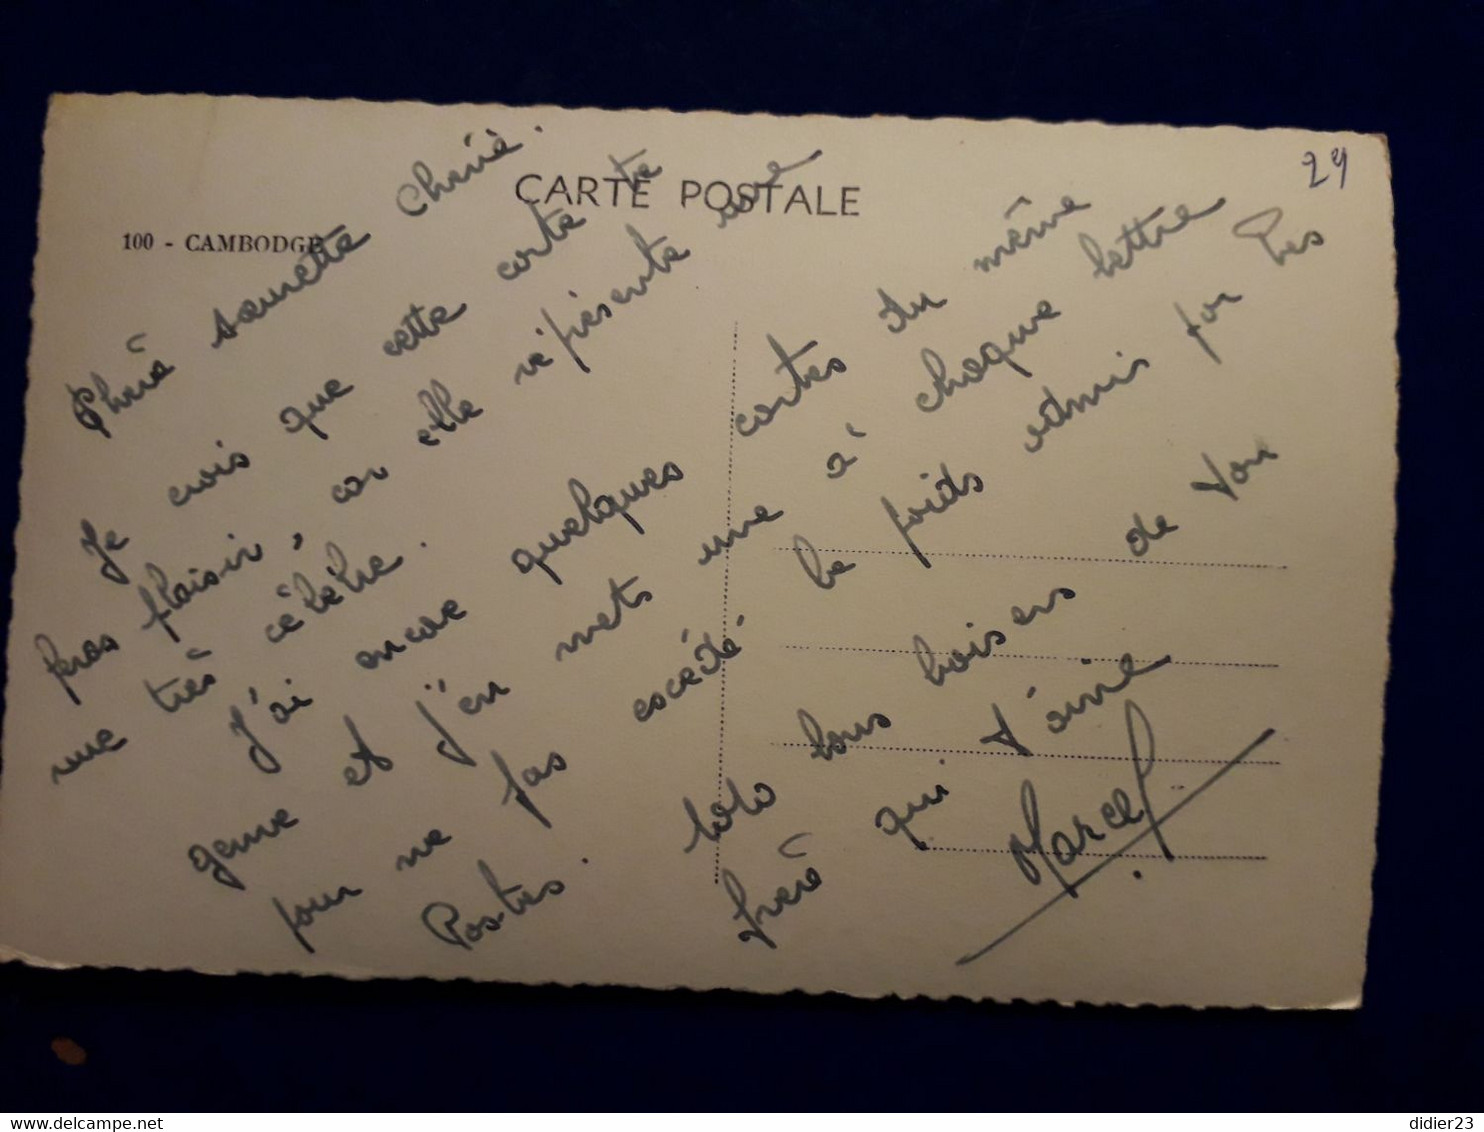 CARTE POSTALE
100 - CAMBODGE
29
Chère sœurette Chérie.
Je crois que cette carte te
feras plaisir, car elle réprésente une
vue très célèbre.
J'ai encore quelques cartes du même
genre et j'en mets une à chaque lettre
pour ne pas excédé le poids admis par les
Postes. 1010 bons baisers de ton
frère qui t'aime
Marcel
didier23